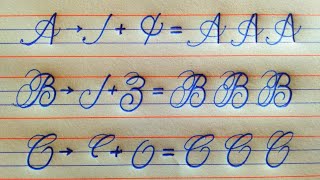 A → / + ¢ = A A A
B → / + 3 = B B B
C → c + o = C C C